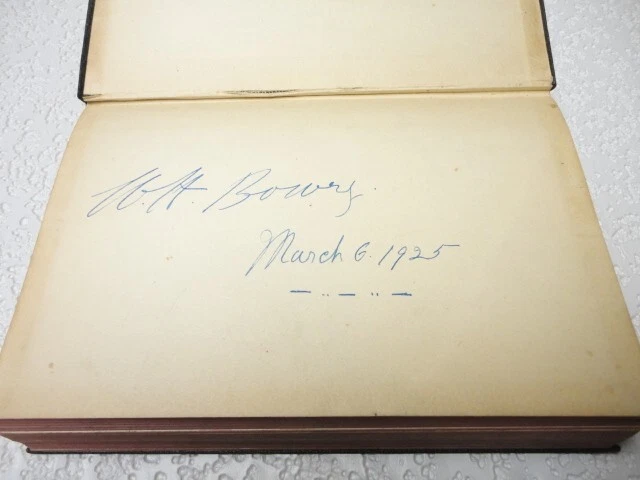 W. H. Bowry.
March 6. 1925